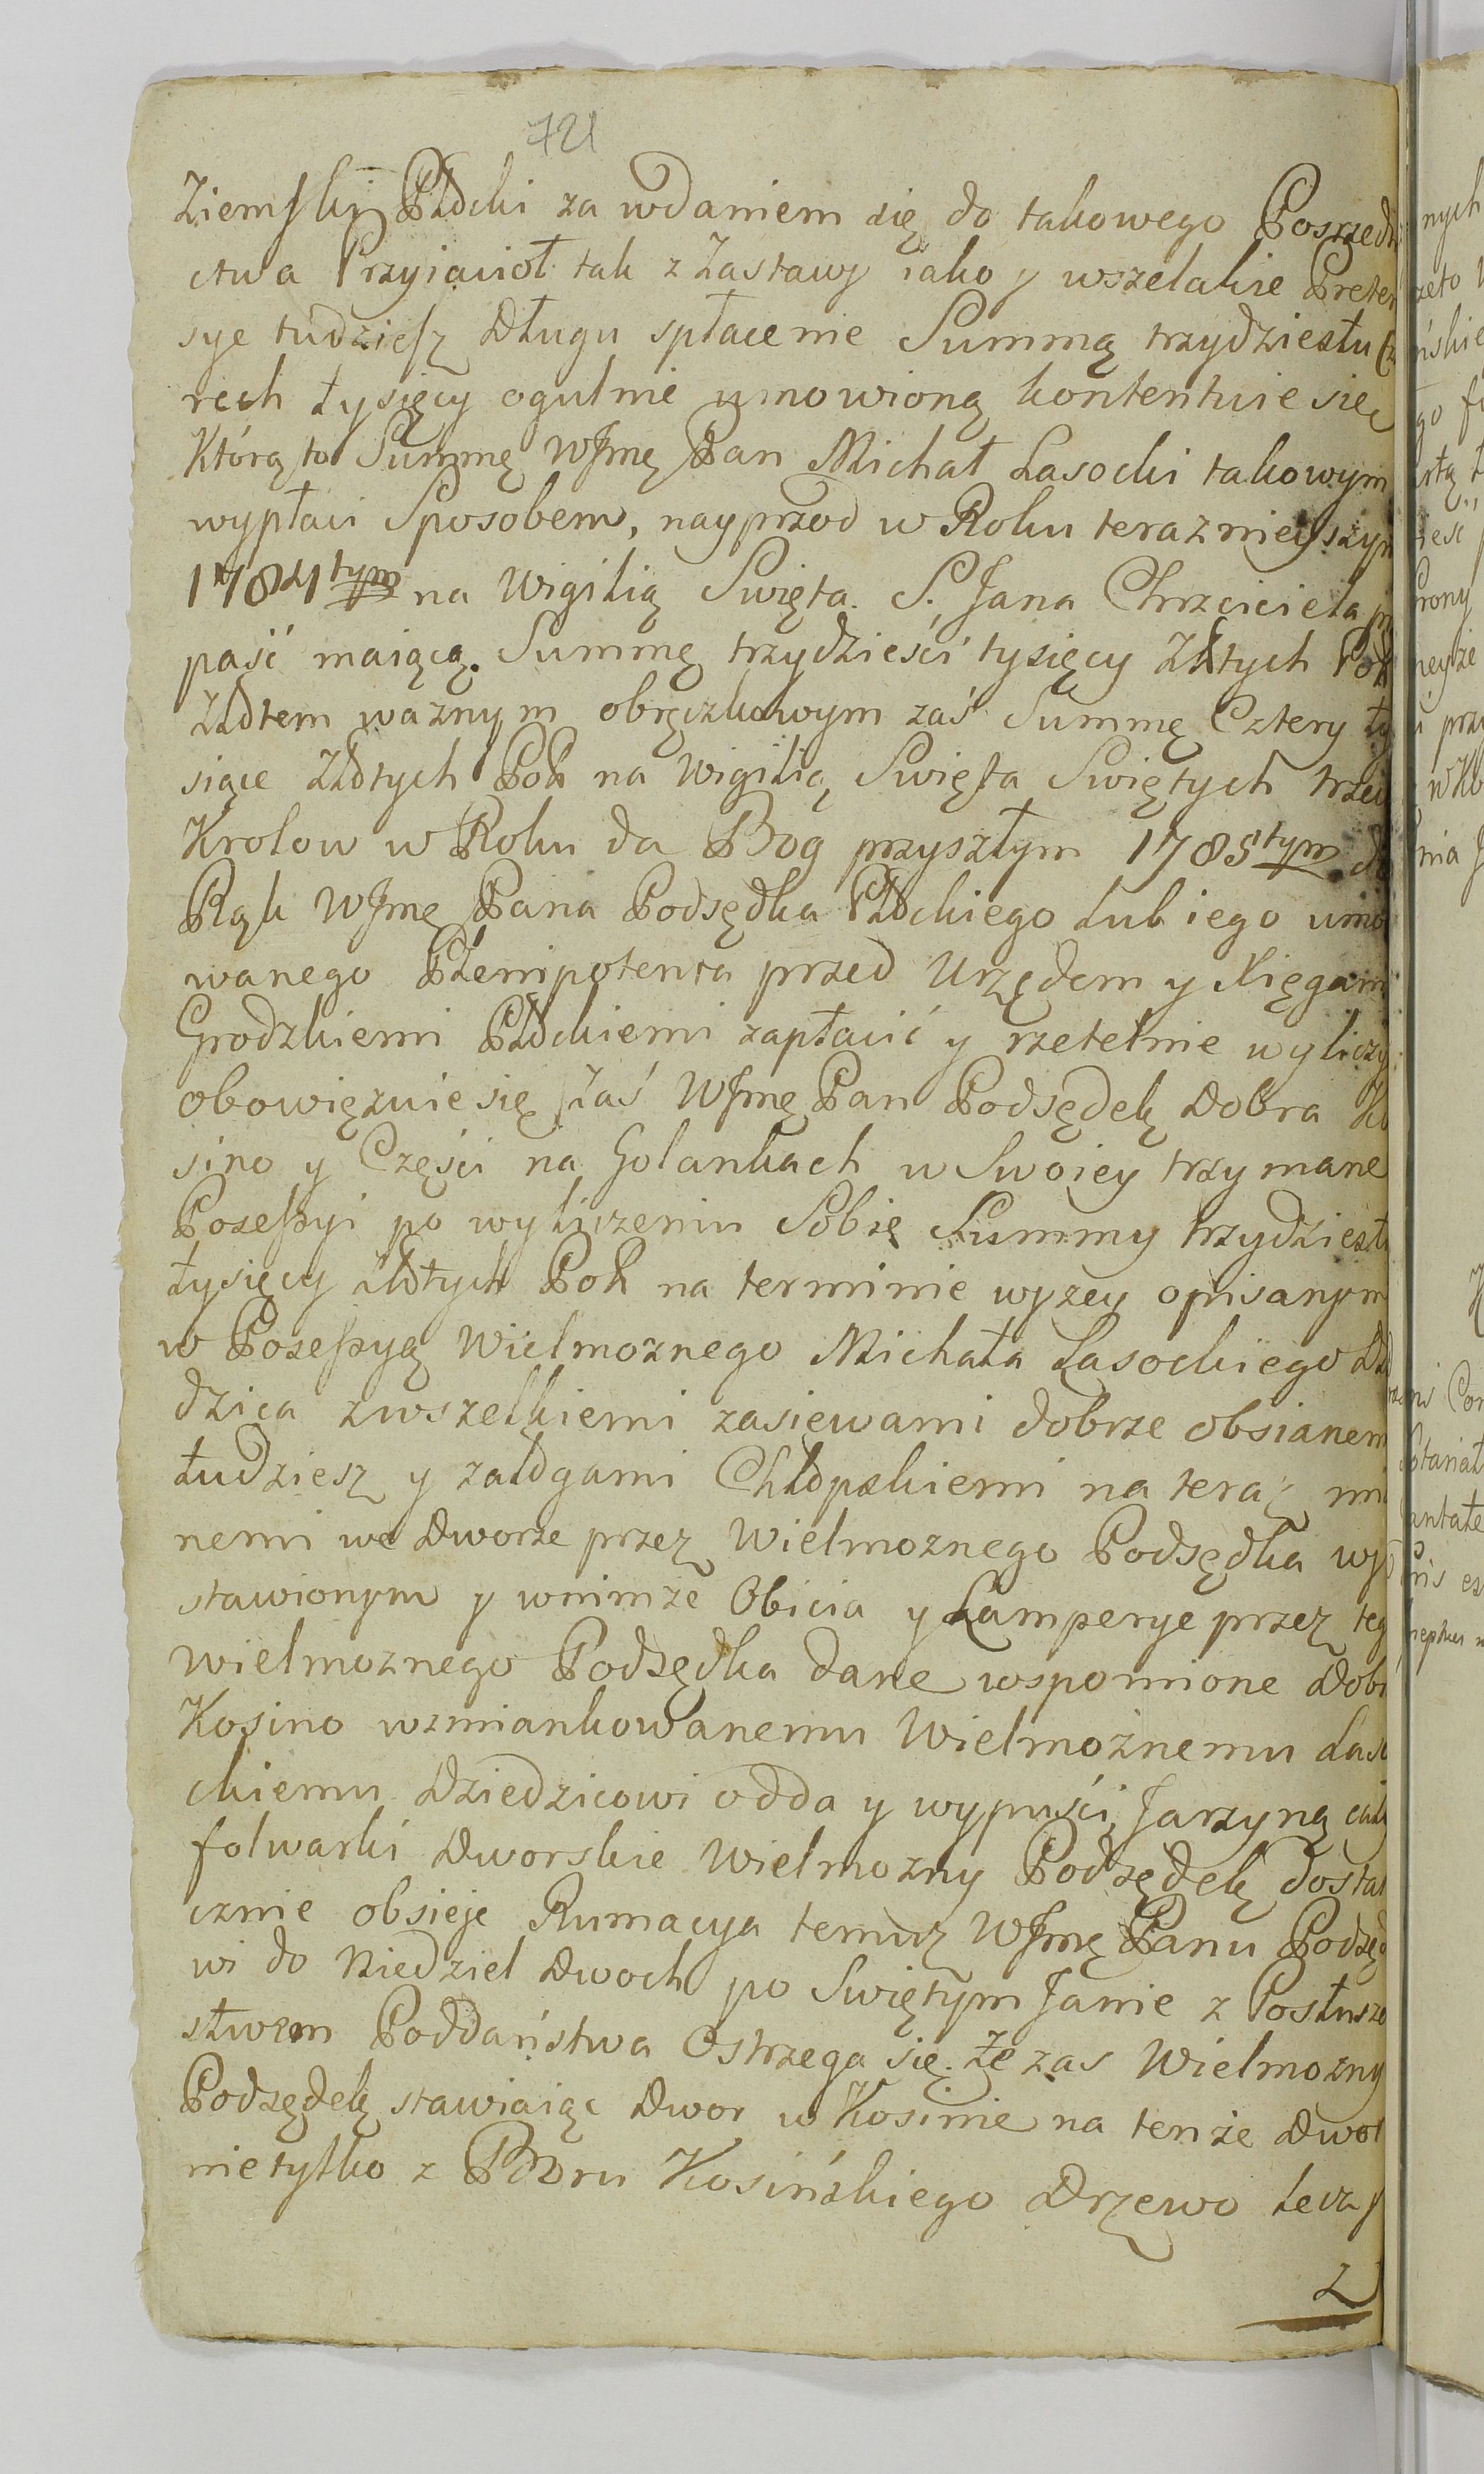 721
Ziemski Płocki za wdaniem się do takowego Posrzedni
ctwa Przyiacioł tak z Zastawy iako y wszelakie Preten
sye tudziesz Długu spłacenie Summą trzydziestu Cz
rech tysięcy ogulnie umowioną kontentuie się
Którą to Summę WJmę Pan Michał Lasocki takowym
wypłaci Sposobem, nayprzod w Roku teraznieyszym
1784tym na Wigilią Swięta S. Jana Chrzciciela przy
paść maiącą. Summę trzydzieści tysięcy Złłtych Pol
Złotem ważnym obrączkowym zaś Summę Cztery ty
siące Złotych Pol na Wigilią Swięta Swiętych trzech
Krolow w Roku da Bog przyszłym 1785tym do
Rąk WJmę Pana Podsędka Płockiego lub iego umo
wanego Plenipotenta przed Urzędem y Xięgami
Grodzkiemi Płockiemi zapłacić y rzetelnie wyliczy
obowięzuie się Zaś WJmę Pan Podsędek Dobra Ko
sino y Części na Golankach w Swoiey trzymane
Posessyi po wyliczeniu Sobie Summy trzydziestu
tysięcy Złotych Pol na terminie wyzey opisanym
w Posessyą Wielmoznego Michała Lasockiego Dzie
dzica zwszelkiemi zasiewami dobrze obsianem
tudziesz y załogami Chłopskiemi na teraz
nemi we Dworze przez Wielmoznego Podsędka wy
stawionym y wnimże Obicia y Lamperye przez teg
Wielmoznego Podsędka dane wspomione Dobr
Kosino wzmiankowanemu Wielmożnemu Laso
ckiemu Dziedzicowi odda y wypuści, Jarzyną cały
folwarki Dworskie Wielmozny Podsędek dostat
cznie obsieje Rumacya temuz WJmę Panu Podsęd
wi do Niedziel Dwoch po Swiętym Janie z Posłusze
stwem Poddaństwa Ostrzega się. Że zas Wielmozny
Podsędek stawiaiąc Dwor w Kosinie na tenże Dwor
nietylko z Boru Kosińskiego Drzewo lecz y
Z